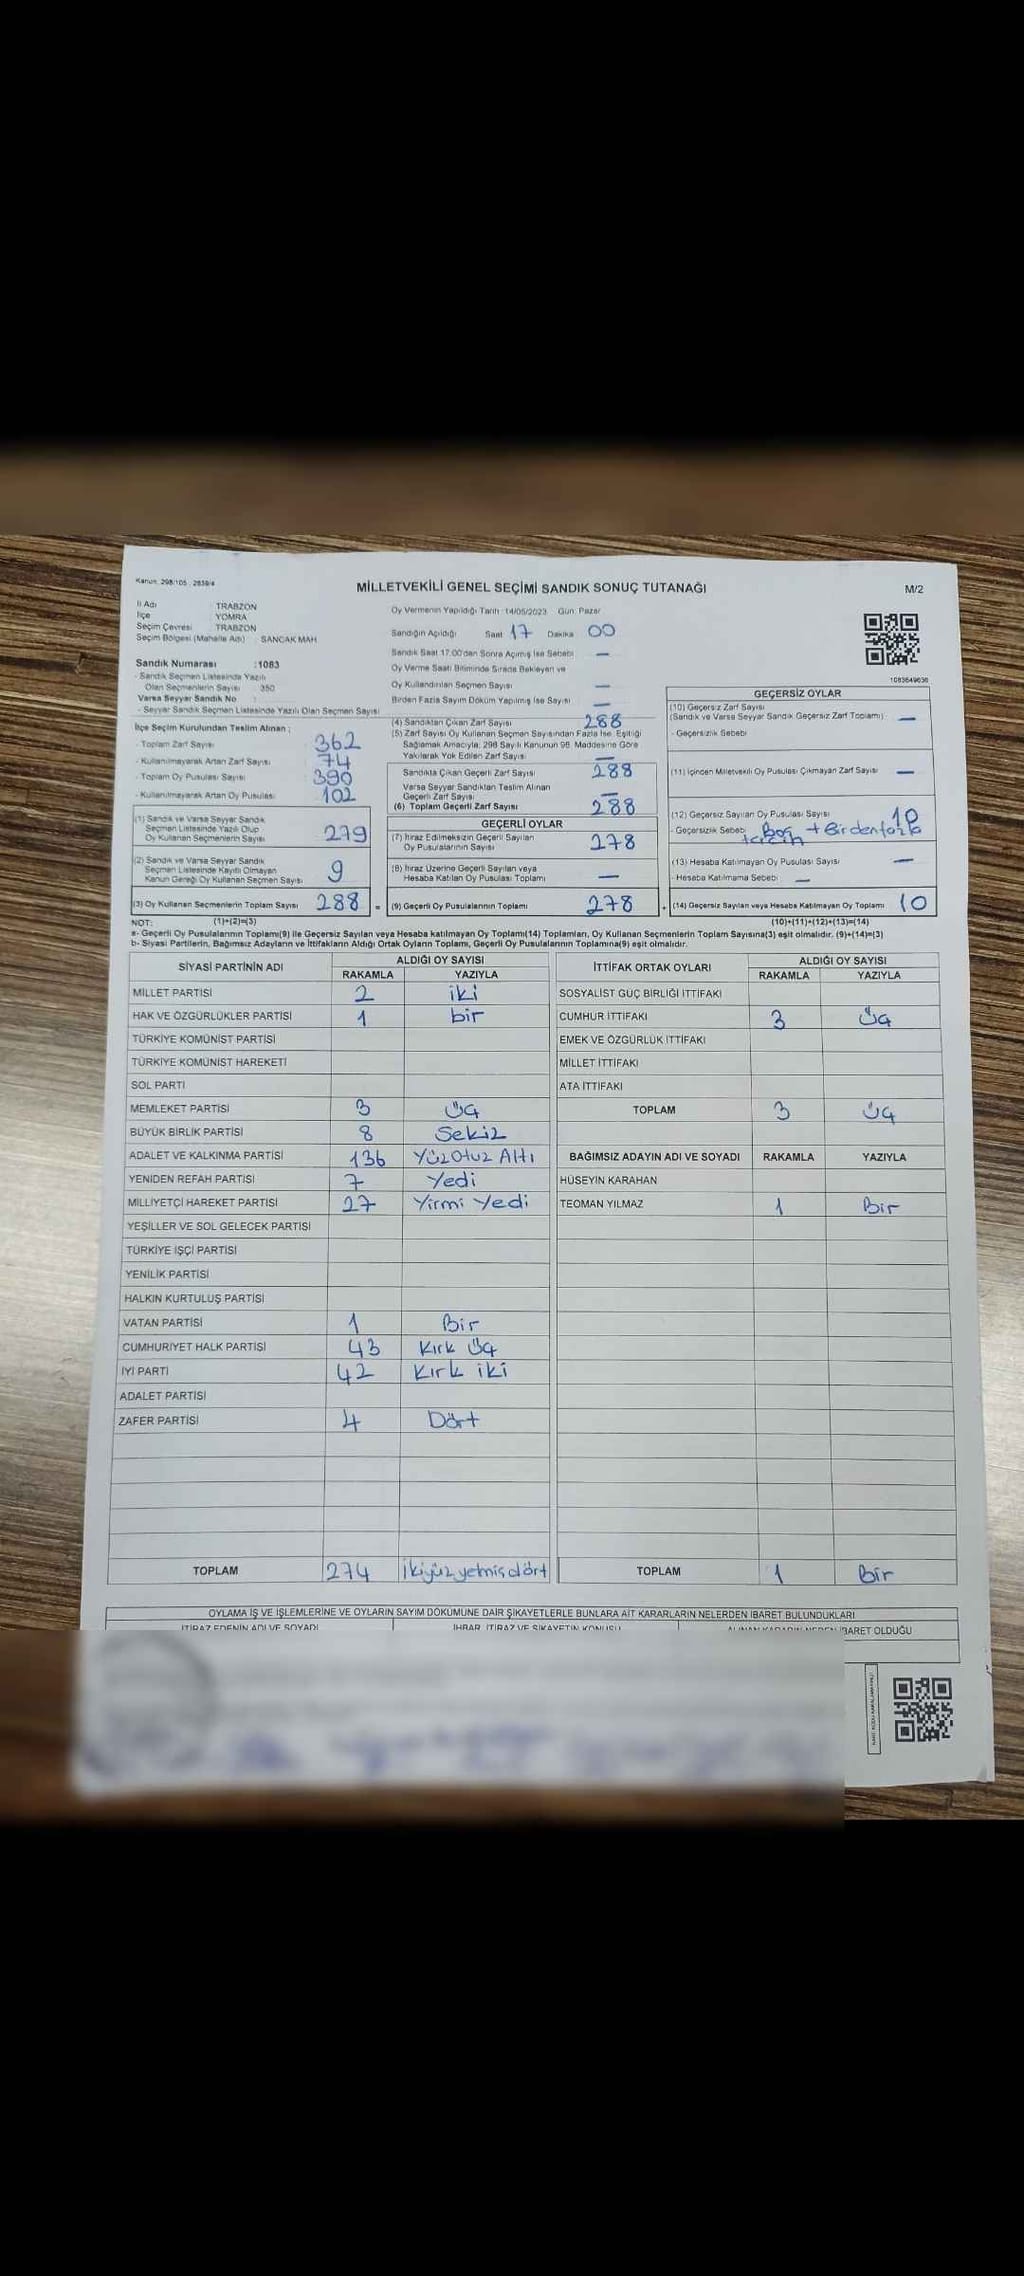 Kanun: 298/105 , 2839/4
MİLLETVEKİLİ GENEL SEÇİMİ SANDIK SONUÇ TUTANAĞI
M/2
İl Adı : TRABZON
İlçe : YOMRA
Seçim Çevresi : TRABZON
Seçim Bölgesi (Mahalle Adı) : SANCAK MAH
Sandık Numarası : 1083
- Sandık Seçmen Listesinde Yazılı
Olan Seçmenlerin Sayısı : 350
Varsa Seyyar Sandık No :
- Seyyar Sandık Seçmen Listesinde Yazılı Olan Seçmen Sayısı
Oy Vermenin Yapıldığı Tarih : 14/05/2023 Gün: Pazar
Sandığın Açıldığı Saat 17 Dakika 00
Sandık Saat 17.00'dan Sonra Açılmış İse Sebebi —
Oy Verme Saati Bitiminde Sırada Bekleyen ve
Oy Kullandırılan Seçmen Sayısı —
Birden Fazla Sayım Döküm Yapılmış İse Sayısı —
1083649636
İlçe Seçim Kurulundan Teslim Alınan ;
- Toplam Zarf Sayısı 362
- Kullanılmayarak Artan Zarf Sayısı 74
- Toplam Oy Pusulası Sayısı 390
- Kullanılmayarak Artan Oy Pusulası 102
(1) Sandık ve Varsa Seyyar Sandık
Seçmen Listesinde Yazılı Olup
Oy Kullanan Seçmenlerin Sayısı 279
(2) Sandık ve Varsa Seyyar Sandık
Seçmen Listesinde Kayıtlı Olmayan
Kanun Gereği Oy Kullanan Seçmen Sayısı 9
(3) Oy Kullanan Seçmenlerin Toplam Sayısı 288 =
(4) Sandıktan Çıkan Zarf Sayısı 288
(5) Zarf Sayısı Oy Kullanan Seçmen Sayısından Fazla İse, Eşitliği
Sağlamak Amacıyla; 298 Sayılı Kanunun 98. Maddesine Göre
Yakılarak Yok Edilen Zarf Sayısı —
Sandıkta Çıkan Geçerli Zarf Sayısı 288
Varsa Seyyar Sandıktan Teslim Alınan
Geçerli Zarf Sayısı —
(6) Toplam Geçerli Zarf Sayısı 288
GEÇERLİ OYLAR
(7) İtiraz Edilmeksizin Geçerli Sayılan
Oy Pusulalarının Sayısı 278
(8) İtiraz Üzerine Geçerli Sayılan veya
Hesaba Katılan Oy Pusulası Toplamı —
(9) Geçerli Oy Pusulalarının Toplamı 278 +
GEÇERSİZ OYLAR
(10) Geçersiz Zarf Sayısı
(Sandık ve Varsa Seyyar Sandık Geçersiz Zarf Toplamı) —
- Geçersizlik Sebebi
(11) İçinden Milletvekili Oy Pusulası Çıkmayan Zarf Sayısı —
(12) Geçersiz Sayılan Oy Pusulası Sayısı 10
- Geçersizlik Sebebi Boş + Birden fazla
tercih
(13) Hesaba Katılmayan Oy Pusulası Sayısı —
- Hesaba Katılmama Sebebi —
(14) Geçersiz Sayılan veya Hesaba Katılmayan Oy Toplamı 10
NOT: (1)+(2)=(3) (10)+(11)+(12)+(13)=(14)
a- Geçerli Oy Pusulalarının Toplamı(9) ile Geçersiz Sayılan veya Hesaba katılmayan Oy Toplamı(14) Toplamları, Oy Kullanan Seçmenlerin Toplam Sayısına(3) eşit olmalıdır. (9)+(14)=(3)
b- Siyasi Partilerin, Bağımsız Adayların ve İttifakların Aldığı Ortak Oyların Toplamı, Geçerli Oy Pusulalarının Toplamına(9) eşit olmalıdır.
SİYASİ PARTİNİN ADI ALDIĞI OY SAYISI
RAKAMLA YAZIYLA
MİLLET PARTİSİ 2 iki
HAK VE ÖZGÜRLÜKLER PARTİSİ 1 bir
TÜRKİYE KOMÜNİST PARTİSİ
TÜRKİYE KOMÜNİST HAREKETİ
SOL PARTİ
MEMLEKET PARTİSİ 3 üç
BÜYÜK BİRLİK PARTİSİ 8 Sekiz
ADALET VE KALKINMA PARTİSİ 136 YüzOtuz Altı
YENİDEN REFAH PARTİSİ 7 Yedi
MİLLİYETÇİ HAREKET PARTİSİ 27 Yirmi Yedi
YEŞİLLER VE SOL GELECEK PARTİSİ
TÜRKİYE İŞÇİ PARTİSİ
YENİLİK PARTİSİ
HALKIN KURTULUŞ PARTİSİ
VATAN PARTİSİ 1 Bir
CUMHURİYET HALK PARTİSİ 43 Kırk Üç
İYİ PARTİ 42 Kırk iki
ADALET PARTİSİ
ZAFER PARTİSİ 4 Dört
TOPLAM 274 ikiyüzyetmişdört
İTTİFAK ORTAK OYLARI ALDIĞI OY SAYISI
RAKAMLA YAZIYLA
SOSYALİST GÜÇ BİRLİĞİ İTTİFAKI
CUMHUR İTTİFAKI 3 üç
EMEK VE ÖZGÜRLÜK İTTİFAKI
MİLLET İTTİFAKI
ATA İTTİFAKI
TOPLAM 3 üç
BAĞIMSIZ ADAYIN ADI VE SOYADI RAKAMLA YAZIYLA
HÜSEYİN KARAHAN
TEOMAN YILMAZ 1 Bir
TOPLAM 1 Bir
OYLAMA İŞ VE İŞLEMLERİNE VE OYLARIN SAYIM DÖKÜMÜNE DAİR ŞİKAYETLERLE BUNLARA AİT KARARLARIN NELERDEN İBARET BULUNDUKLARI
İTİRAZ EDENİN ADI VE SOYADI İHBAR, İTİRAZ VE ŞİKAYETİN KONUSU ALINAN KARARIN NEDEN İBARET OLDUĞU